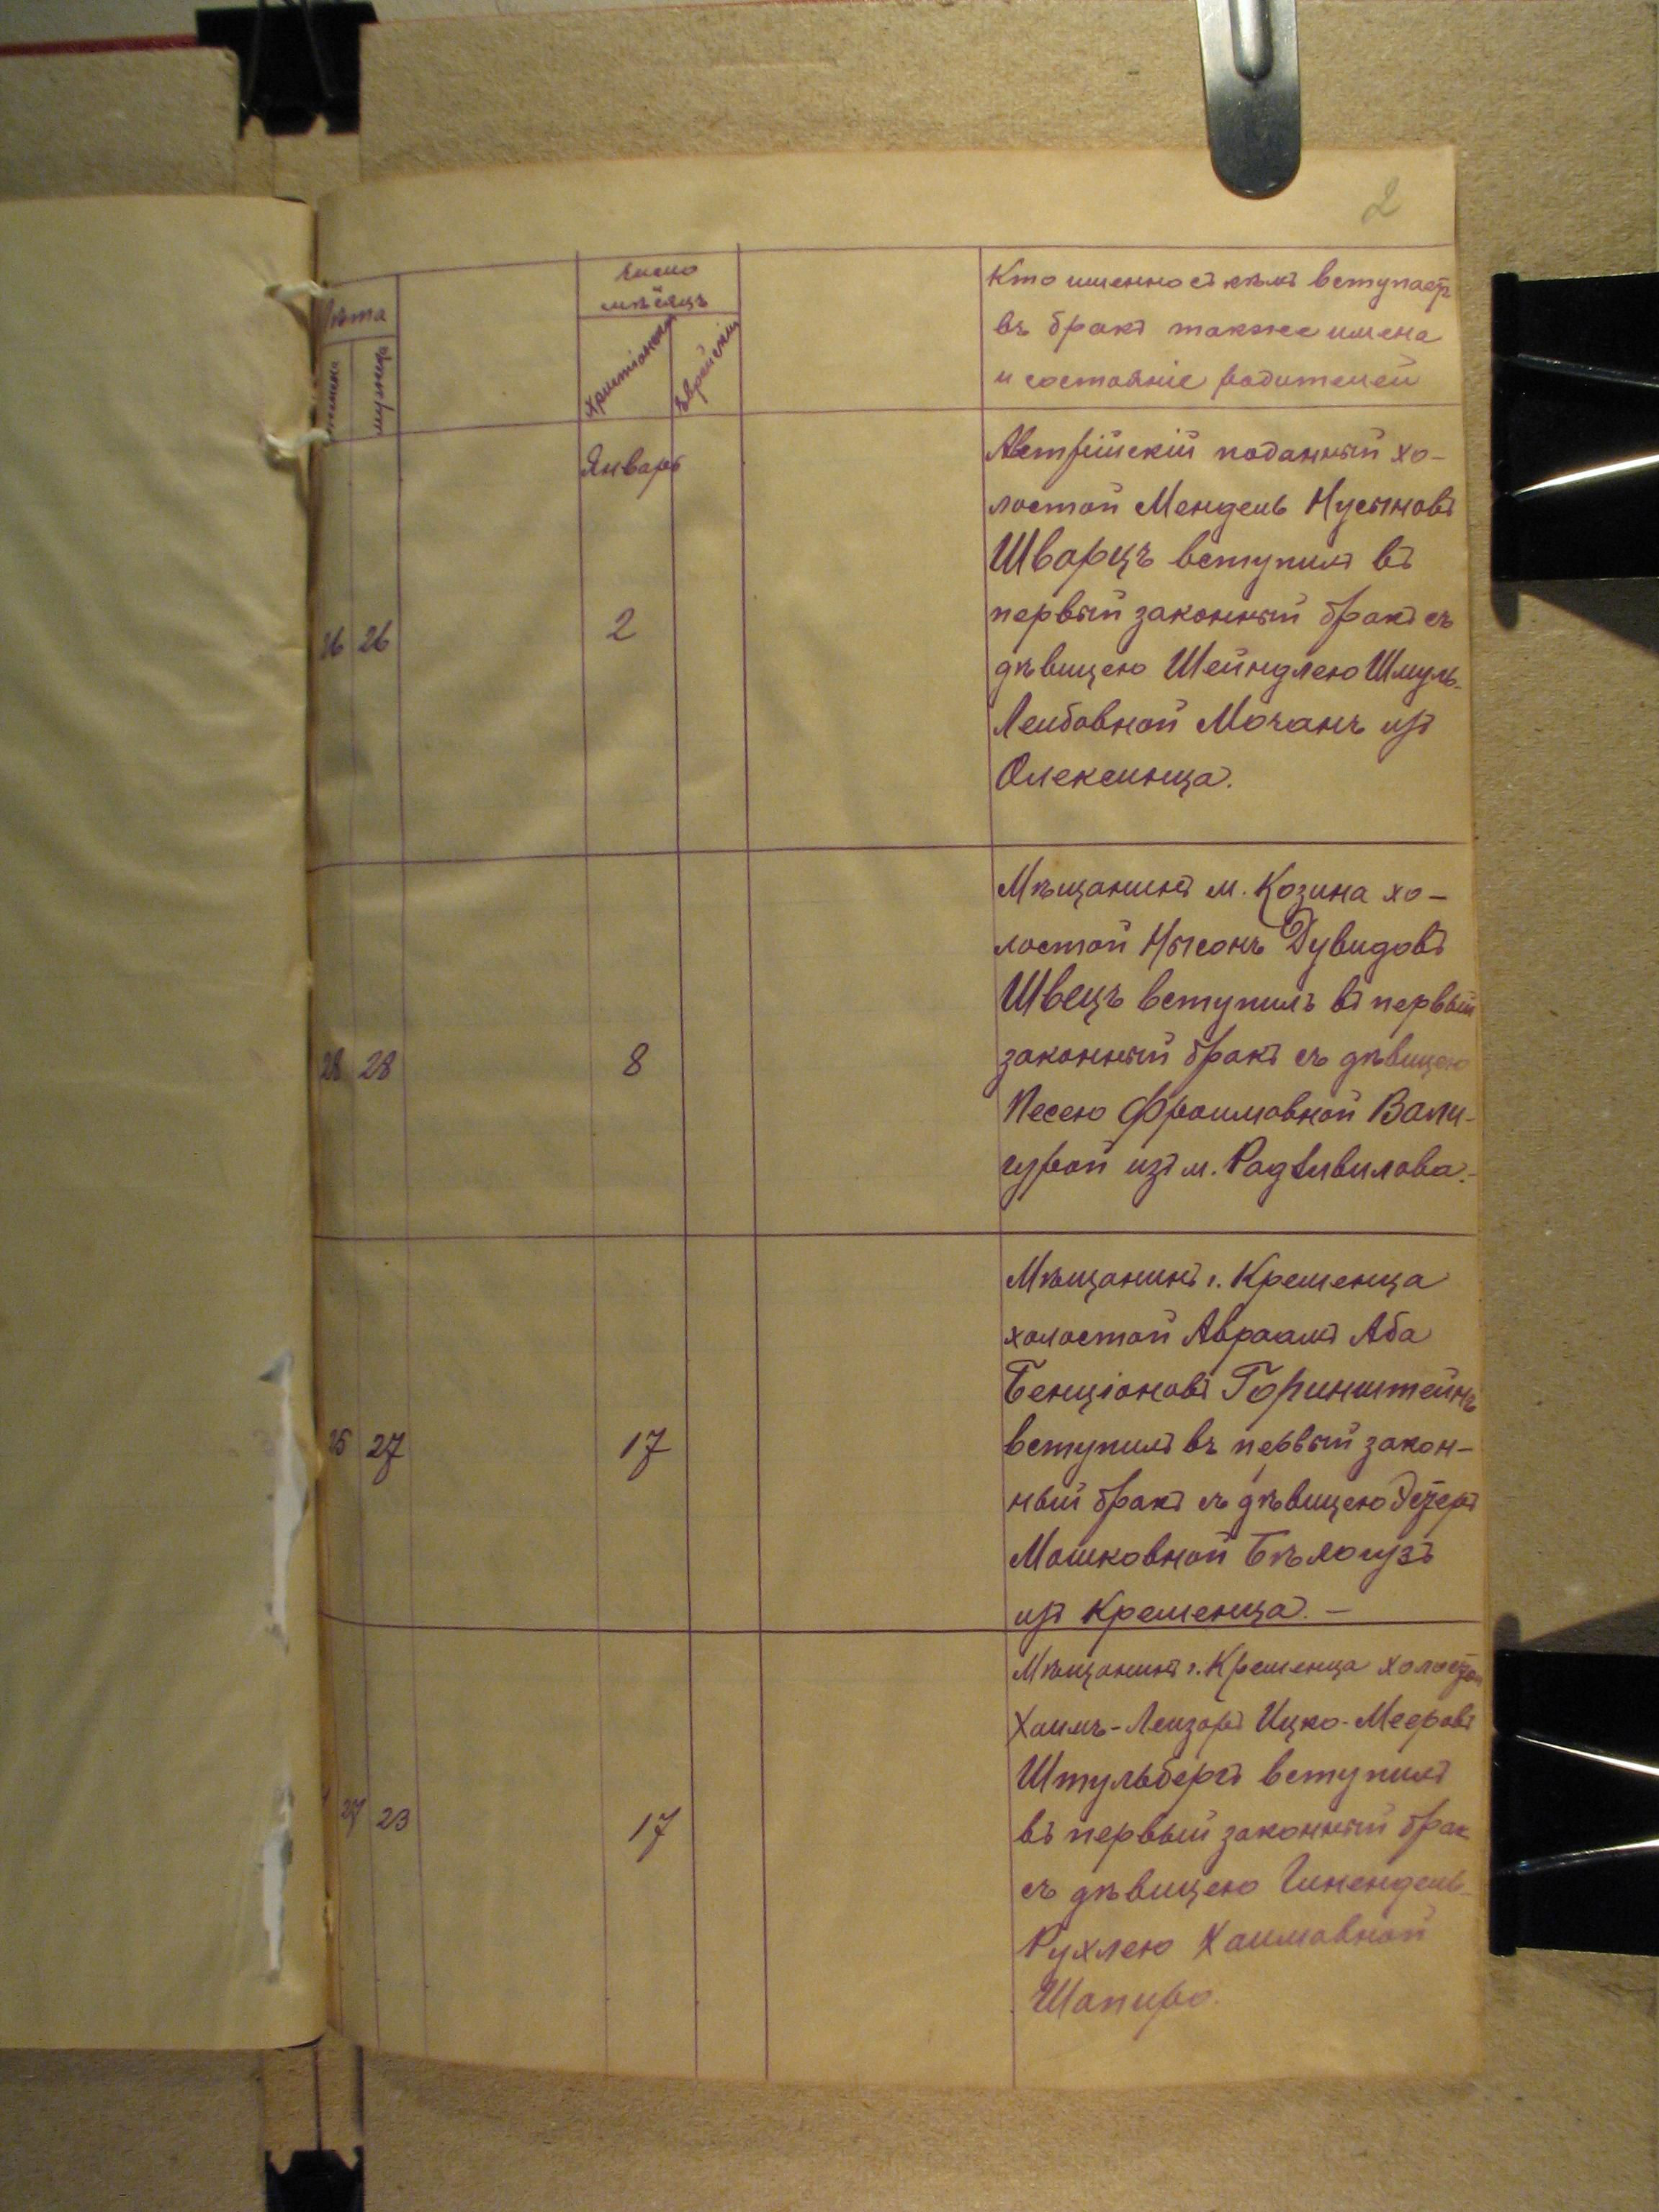 2
Лѣта
мужида
Число
мѣсяцъ
Христіанскій
Еврейскій
Кто именно съ кѣмъ вступаетъ
въ бракъ также имена
и состояніе родителей
Январь
26 26
2
Австрійскій поданный хо-
лостой Мендель Нусыновъ
Шварцъ вступилъ въ
первый законный бракъ съ
дѣвицею Шейндлею Шмуль-
Лейбовной Мочанъ изъ
Олексинца.
28 28
8
Мѣщанинъ м. Козина хо-
лостой Нысонъ Дувидовъ
Швецъ вступилъ въ первый
законный бракъ съ дѣвицею
Песею Фроимовной Вапи-
гурой изъ м. Радзивилова.-
25 27
17
Мѣщанинъ г. Кременца
холостой Авраамъ Аба
Бенціоновъ Горинштейнъ
вступилъ въ первый закон-
ный бракъ съ дѣвицею Эстеръ
Мошковной Бѣлогузъ
изъ Кременца. -
27 23
17
Мѣщанинъ г. Кременца холостой
Хаимъ-Лейзоръ Ицко-Мееровъ
Штульбергъ вступилъ
въ первый законный брак
съ дѣвицею Гинендель-
Рухлею Хаимовной
Шапиро.